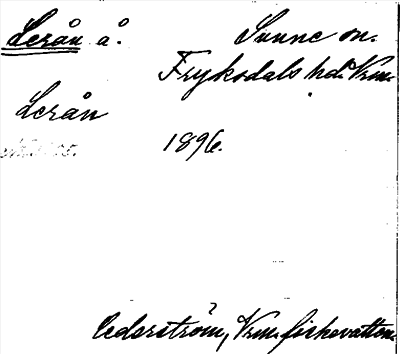 Lerån å. Sunne sn.
Fryksdals hd. Vrm.
Lerån
1896.
Cederström, Vrm. fiskevatten